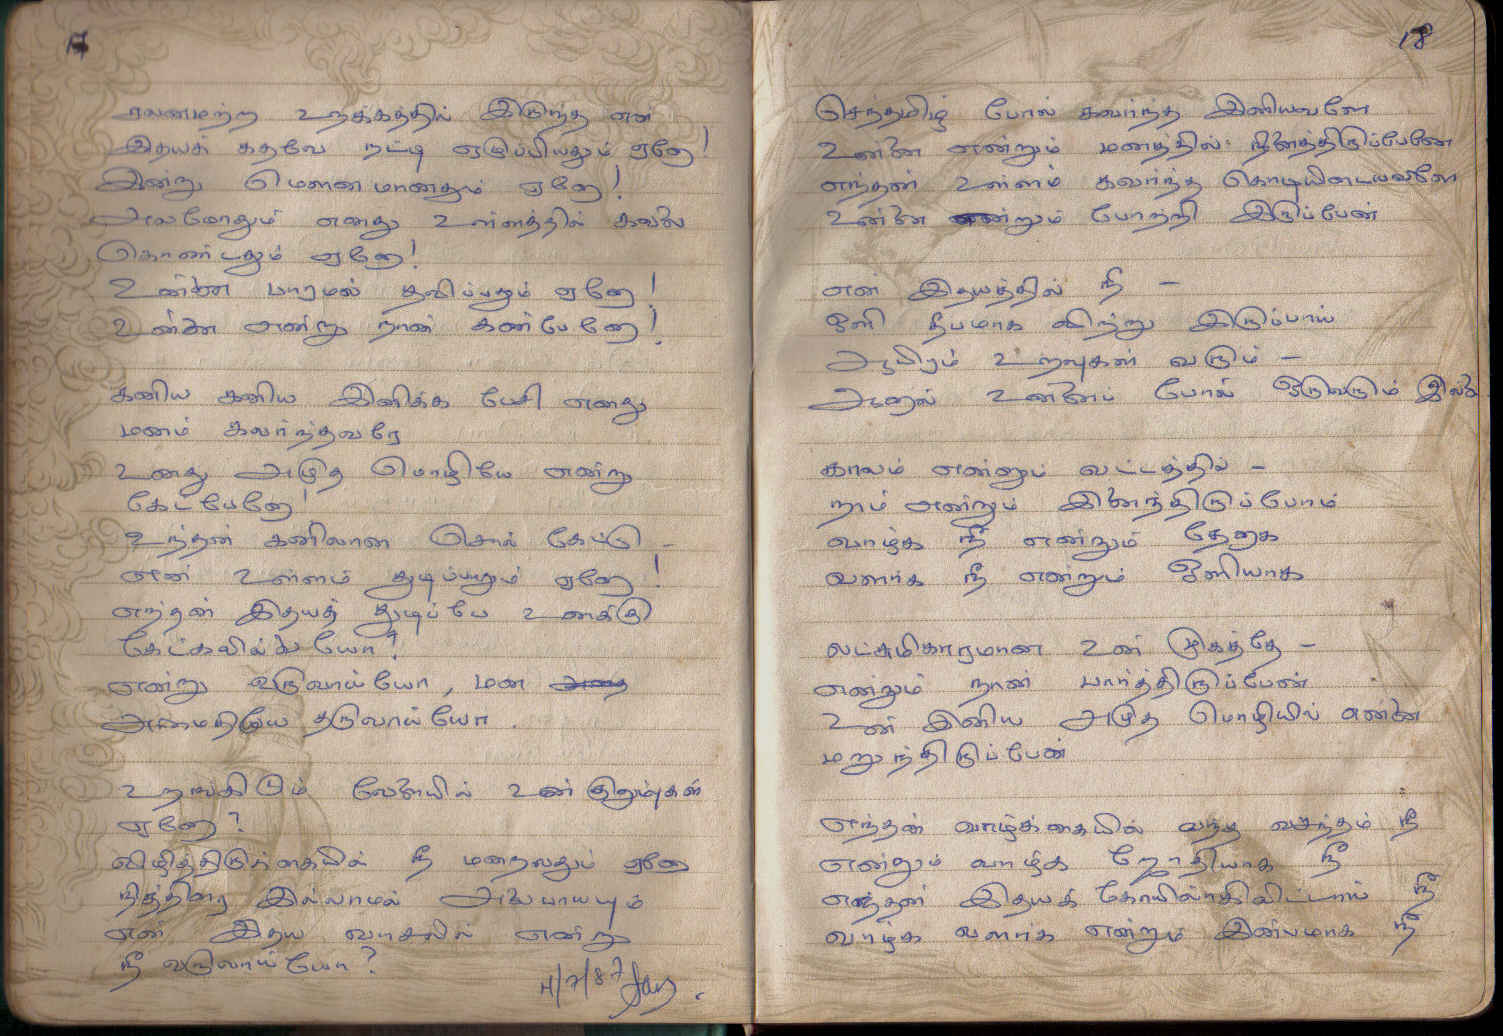 17
சலனமற்ற உறக்கத்தில் இருந்த என்
இதயக் கதவே தட்டி எழுப்பியதும் ஏனோ!
இன்று மௌனமானதும் ஏனோ!
அலமோதும் எனது உள்ளத்தில் கவலை
கொண்டதும் ஏனோ!
உன்னை பாரமல் தவிப்பதும் ஏனோ!
உன்னை என்று நான் காண்பேனோ!
கனிய கனிய இனிக்க பேசி எனது
மனம் கவர்ந்தவரே
உனது அமுத மொழியே என்று
கேட்பேனோ!
உந்தன் கனிவான சொல் கேட்டு -
என் உள்ளம் துடிப்பதும் ஏனோ!
எந்தன் இதயத் துடிப்பே உனக்கு
கேட்கவில்லையோ!
என்று வருவாய்யோ, மன
அமைதியே தருவாய்யோ.
உறங்கிடும் வேளையில் உன் குறும்புகள்
ஏனோ?
விழித்திடுகையில் நீ மறைவதும் ஏனோ
நித்திரை இல்லாமல் அலைபாயும்
என் இதய வாசலில் என்று
நீ வருவாய்யோ?
4/7/87
18
செந்தமிழ் போல் கவர்ந்த இனியவளே
உன்னை என்றும் மனத்தில் நினைத்திருப்பேனே
எந்தன் உள்ளம் கவர்ந்த கொடியிடையவளே
உன்னை என்றும் போற்றி இருப்பேன்
என் இதயத்தில் நீ -
ஒளி தீபமாக வீற்று இருப்பாய்
ஆயிரம் உறவுகள் வரும் -
ஆனால் உன்னைப் போல் ஒருவரும் இல்லை
காலம் என்னும் வட்டத்தில் -
நாம் என்றும் இணைந்திருப்போம்
வாழ்க நீ என்றும் தேனாக
வளர்க நீ என்றும் ஒளியாக
லட்சுமிகாரமான உன் முகத்தே -
என்றும் நான் பார்த்திருப்பேன்
உன் இனிய அமுத மொழியில் என்னை
மறுந்திருப்பேன்
எந்தன் வாழ்க்கையில் வந்த வசந்தம் நீ
என்றும் வாழ்க ஜோதியாக நீ
எந்தன் இதயக் கோயிலாகிவிட்டாய் நீ
வாழ்க வளர்க என்றும் இன்பமாக நீ